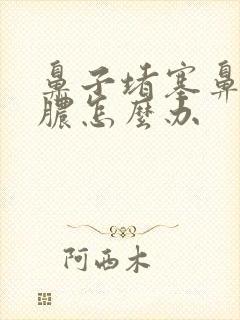 鼻子堵塞鼻
脓怎麼办
阿西木